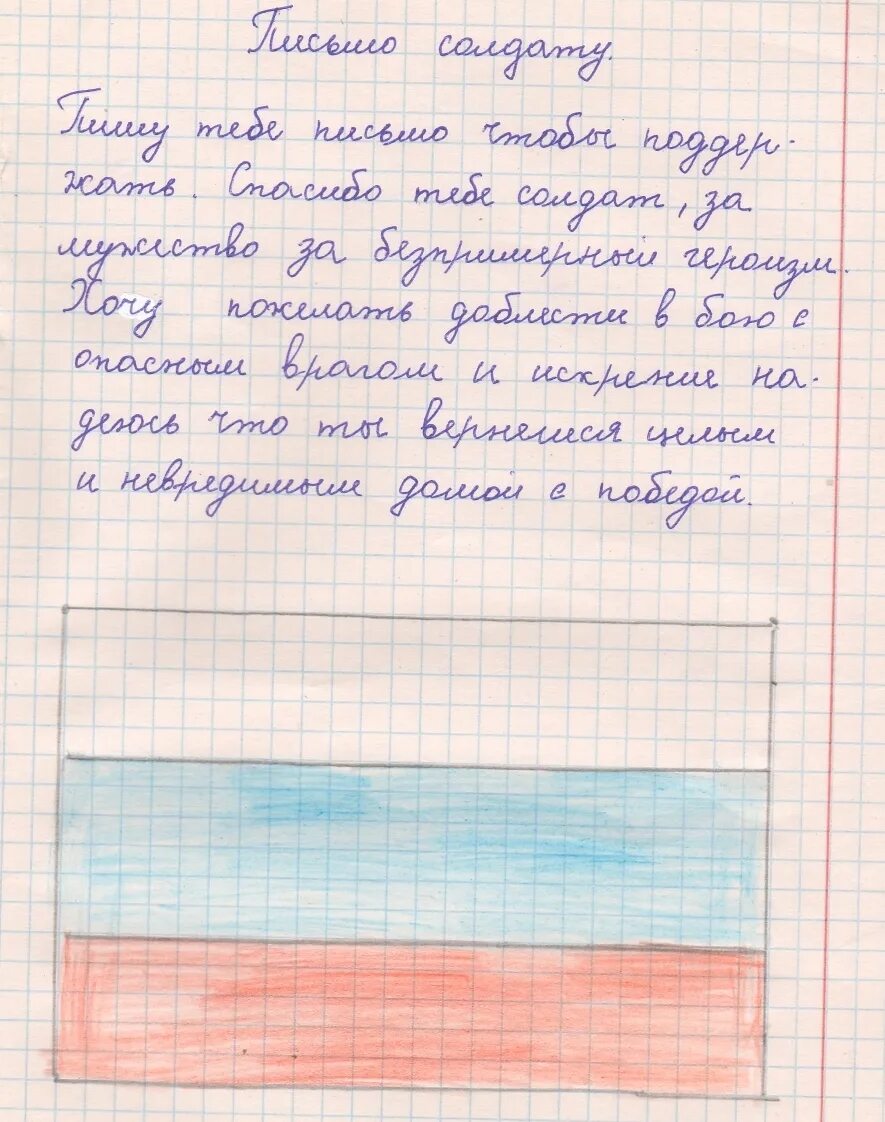 Письмо солдату.
Пишу тебе письмо чтобы поддер-
жать. Спасибо тебе солдат, за
мужество за безпримерный героизм.
Хочу пожелать доблести в бою с
опасным врагом и искрение на-
деюсь что ты вернешися целым
и невредимым домой с победой.